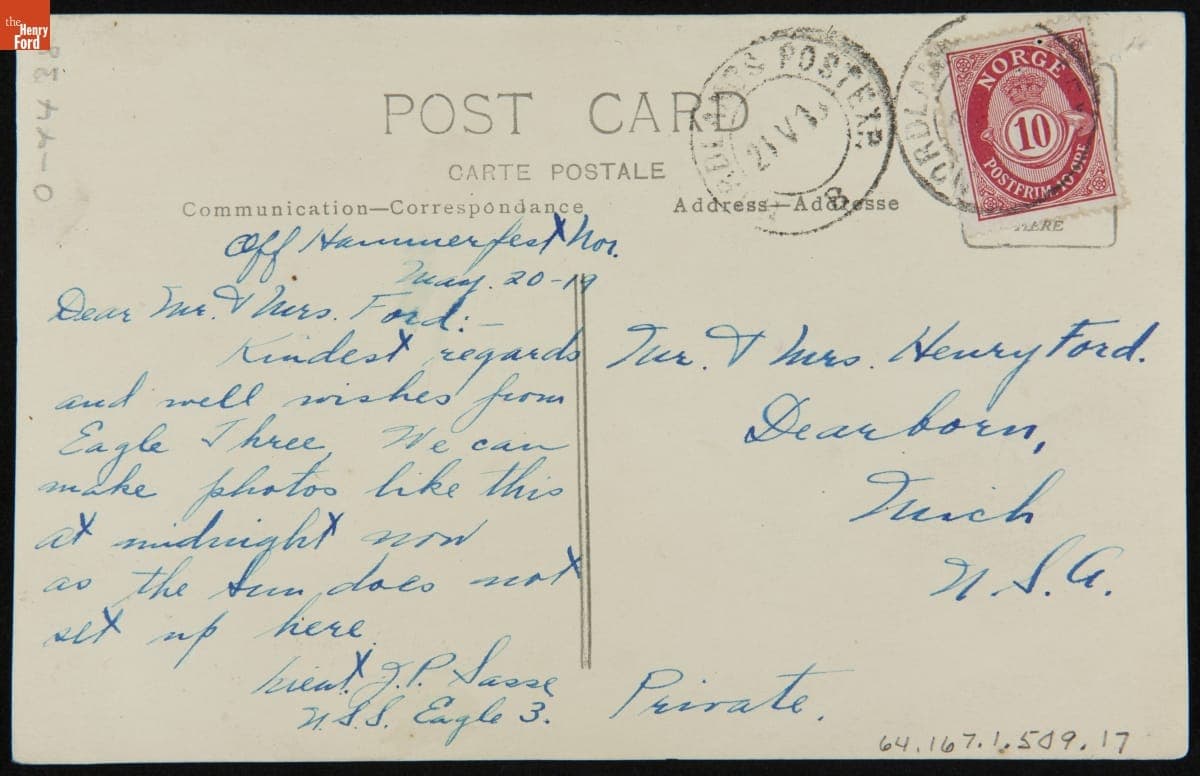 the
Henry
Ford
0-4438
POST CARD
CARTE POSTALE
Communication—Correspondance
Address—Addresse
POSTEXP.
21 V
8
NORDLAN
NORGE
10
POSTFRIM
ØRE
HERE
Off Hammerfest Nor.
May. 20-19
Dear Mr. & Mrs. Ford:—
Kindest regards
and well wishes from
Eagle Three. We can
make photos like this
at midnight now
as the sun does not
set up here.
Lieut. J.P. Sasse
U.S.S. Eagle 3.
Mr. & Mrs. Henry Ford.
Dearborn,
Mich
U.S.A.
Private.
64.167.1.509.17